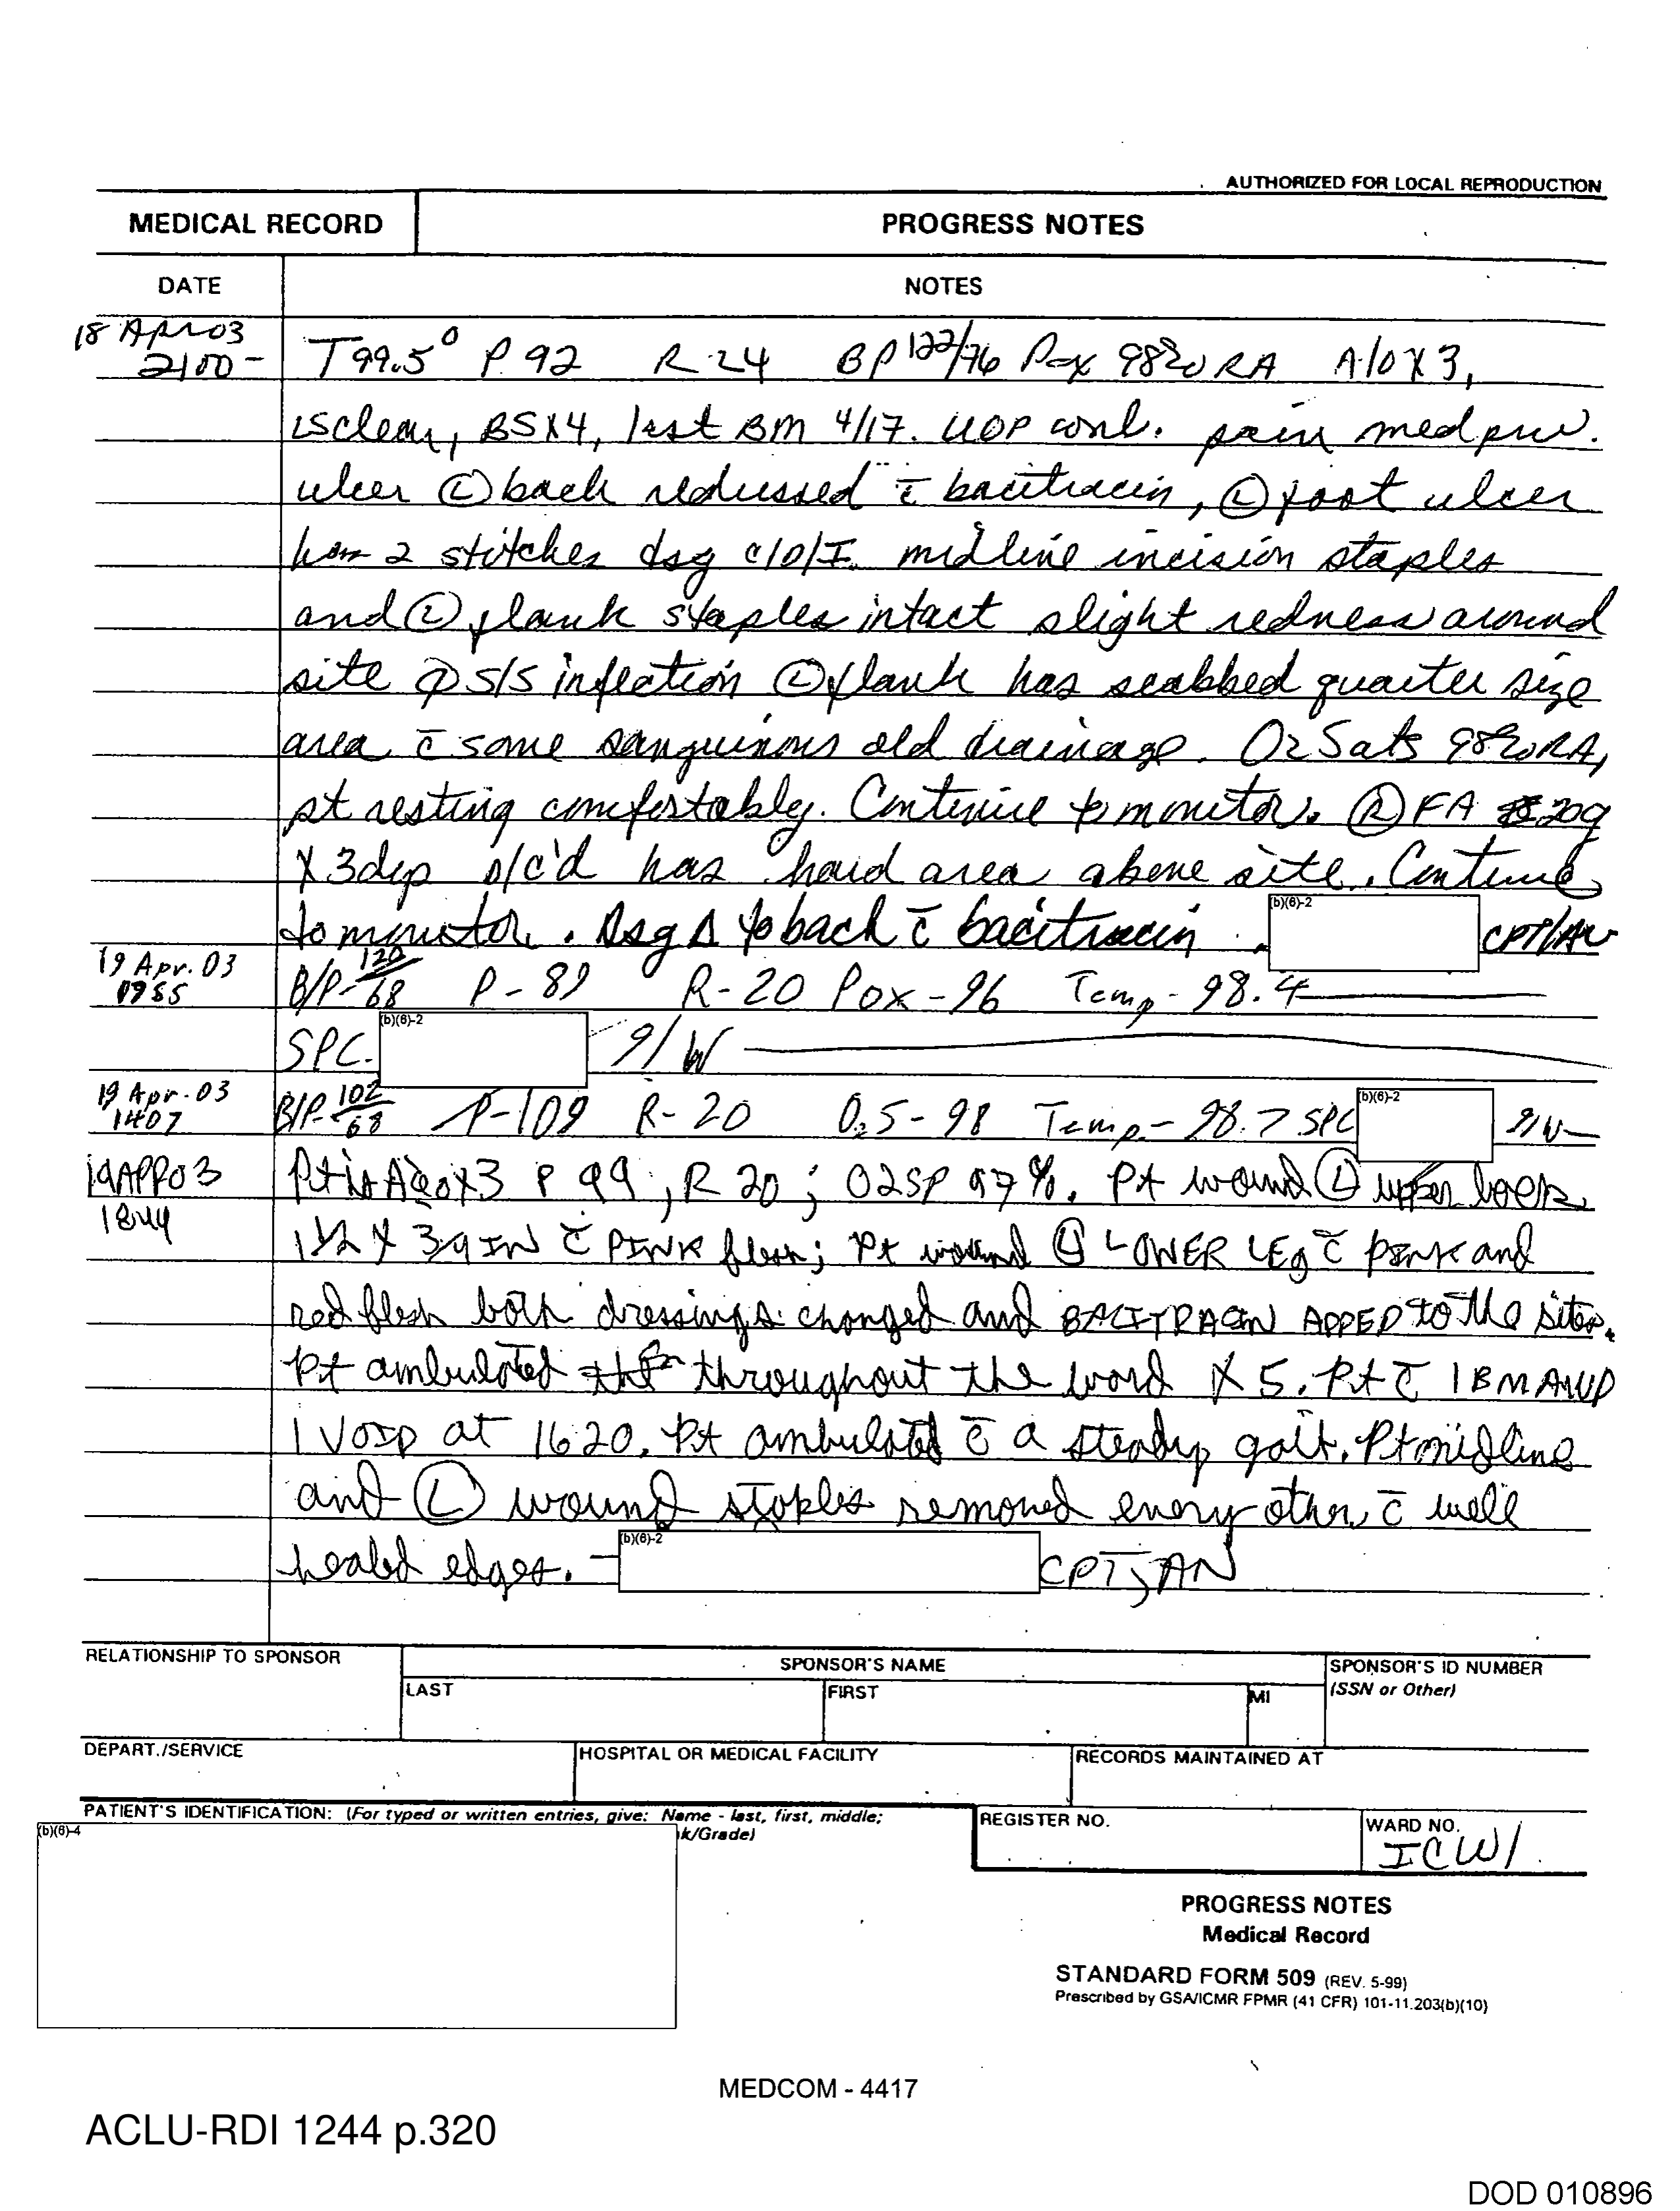 AUTHORIZED FOR LOCAL REPRODUCTION
MEDICAL RECORD PROGRESS NOTES
DATE NOTES
18 Apr 03
2100- T 99.5° P 92 R 24 BP 122/76 Pox 98% RA A/O X 3,
LS clear, BS X4, last BM 4/17. UOP cont. pain med
ulcer Ⓛ back redressed c̄ bacitracin, Ⓛ foot ulcer
has 2 stitches dsg c/D/I. midline incision staples
and Ⓛ flank staples intact slight redness around
site S/S infection Ⓛ flank has scabbed quarter size
area c̄ some sanguinous old drainage. O2 Sats 98% RA,
pt resting comfortably. Continue to monitor. Ⓡ FA 20g
X 3 d/c'd has hard area above site. Continue
to monitor. Dsg Δ to back c̄ bacitracin (b)(6)-2 CPT/AN
19 Apr. 03
B/P- 120/68 P- 89 R-20 Pox-96 Temp- 98.4
SPC. (b)(6)-2 91W
19 Apr. 03
1407 B/P- 102/68 P-109 R-20 O2S-98 Temp.- 98.7 SPC (b)(6)-2 91W
19APR03 Pt is A&OX3 P 99, R 20; O2SP 97%. Pt wound Ⓛ upper back
1844
1 1/2 X 3/4 IN c̄ PINK flesh; Pt wound Ⓛ LOWER LEG c̄ PINK and
red flesh both dressings changed and BACITRACIN ADDED to the sites.
Pt ambulated throughout the ward X 5. Pt c̄ 1 BM AND
1 VOID at 1620. Pt ambulated c̄ a steady gait. Pt midline
and Ⓛ wound staples removed every other c̄ well
healed edges. (b)(6)-2 CPT, AN
RELATIONSHIP TO SPONSOR SPONSOR'S NAME SPONSOR'S ID NUMBER
LAST FIRST MI (SSN or Other)
DEPART./SERVICE HOSPITAL OR MEDICAL FACILITY RECORDS MAINTAINED AT
PATIENT'S IDENTIFICATION: (For typed or written entries, give: Name - last, first, middle; REGISTER NO. WARD NO.
(b)(6)-4 k/Grade) ICW1
PROGRESS NOTES
Medical Record
STANDARD FORM 509 (REV. 5-99)
Prescribed by GSA/ICMR FPMR (41 CFR) 101-11.203(b)(10)
MEDCOM - 4417
ACLU-RDI 1244 p.320
DOD 010896